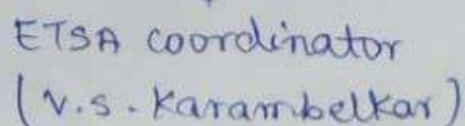 ETSA coordinator
(V.S. Karambelkar)